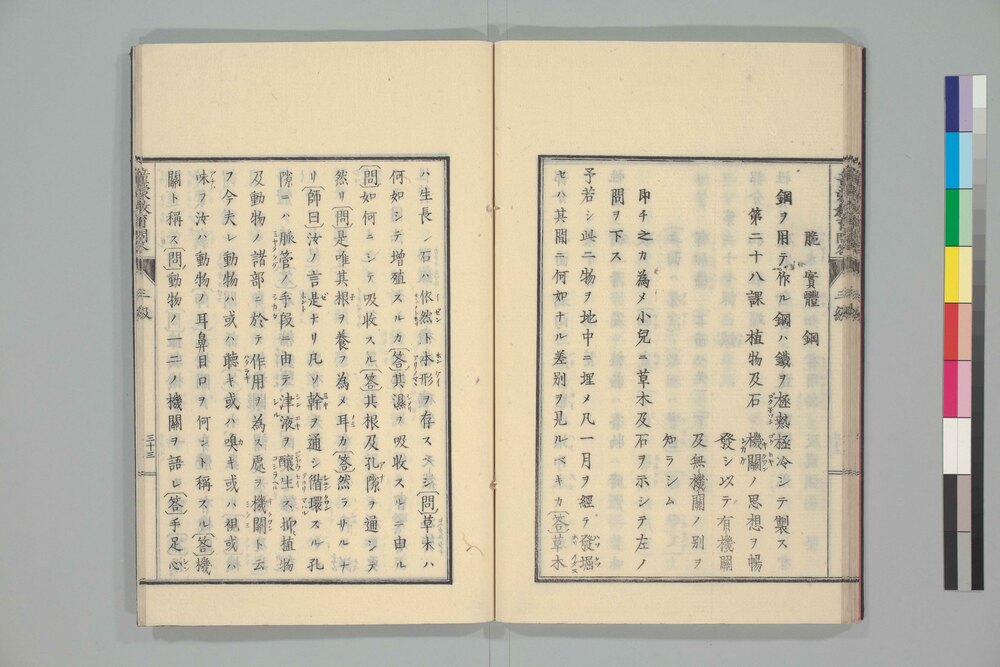 脆 實體 鋼
鋼ヲ用テ作ル鋼ハ鐵ヲ極熱極冷シテ製ス
第二十八課 植物及石 機關ノ思想ヲ暢
發シ以テ有機關
及無機關ノ別ヲ
知ラシム
即チ之カ為メ小兒ニ草木及石ヲ示シテ左ノ
問ヲ下ス
予若シ此二物ヲ地中ニ埋メ凡一月ヲ經テ發堀
セハ其間ニ何如ナル差別ヲ見ルベキカ〔答〕草木
ハ生長シ石ハ依然ト本形ヲ存ス〔問〕草木ハ
何如シテ增殖スルカ〔答〕其濕ヲ吸收スルニ由ル
〔問〕如何ニシテ吸收スル〔答〕其根及孔隙ヲ通シテ
然リ〔問〕是唯其根ヲ養フ為メ耳カ〔答〕然ラサルナ
リ〔師曰〕汝ノ言是ナリ凡ソ幹ヲ通シ循環スル孔
隙ニハ脈管ノ手段ニ由テ津液ヲ釀生ス抑植物
及動物ノ諸部ニ於テ作用ヲ為ス處ヲ機關ト云
フ今夫レ動物ハ或ハ聽キ或ハ嗅キ或ハ視或ハ
味フ汝ハ動物ノ耳鼻目口ヲ何ント稱スル〔答〕機
關ト稱ス〔問〕動物ノ一二ノ機關ヲ語レ〔答〕手足心
三十三